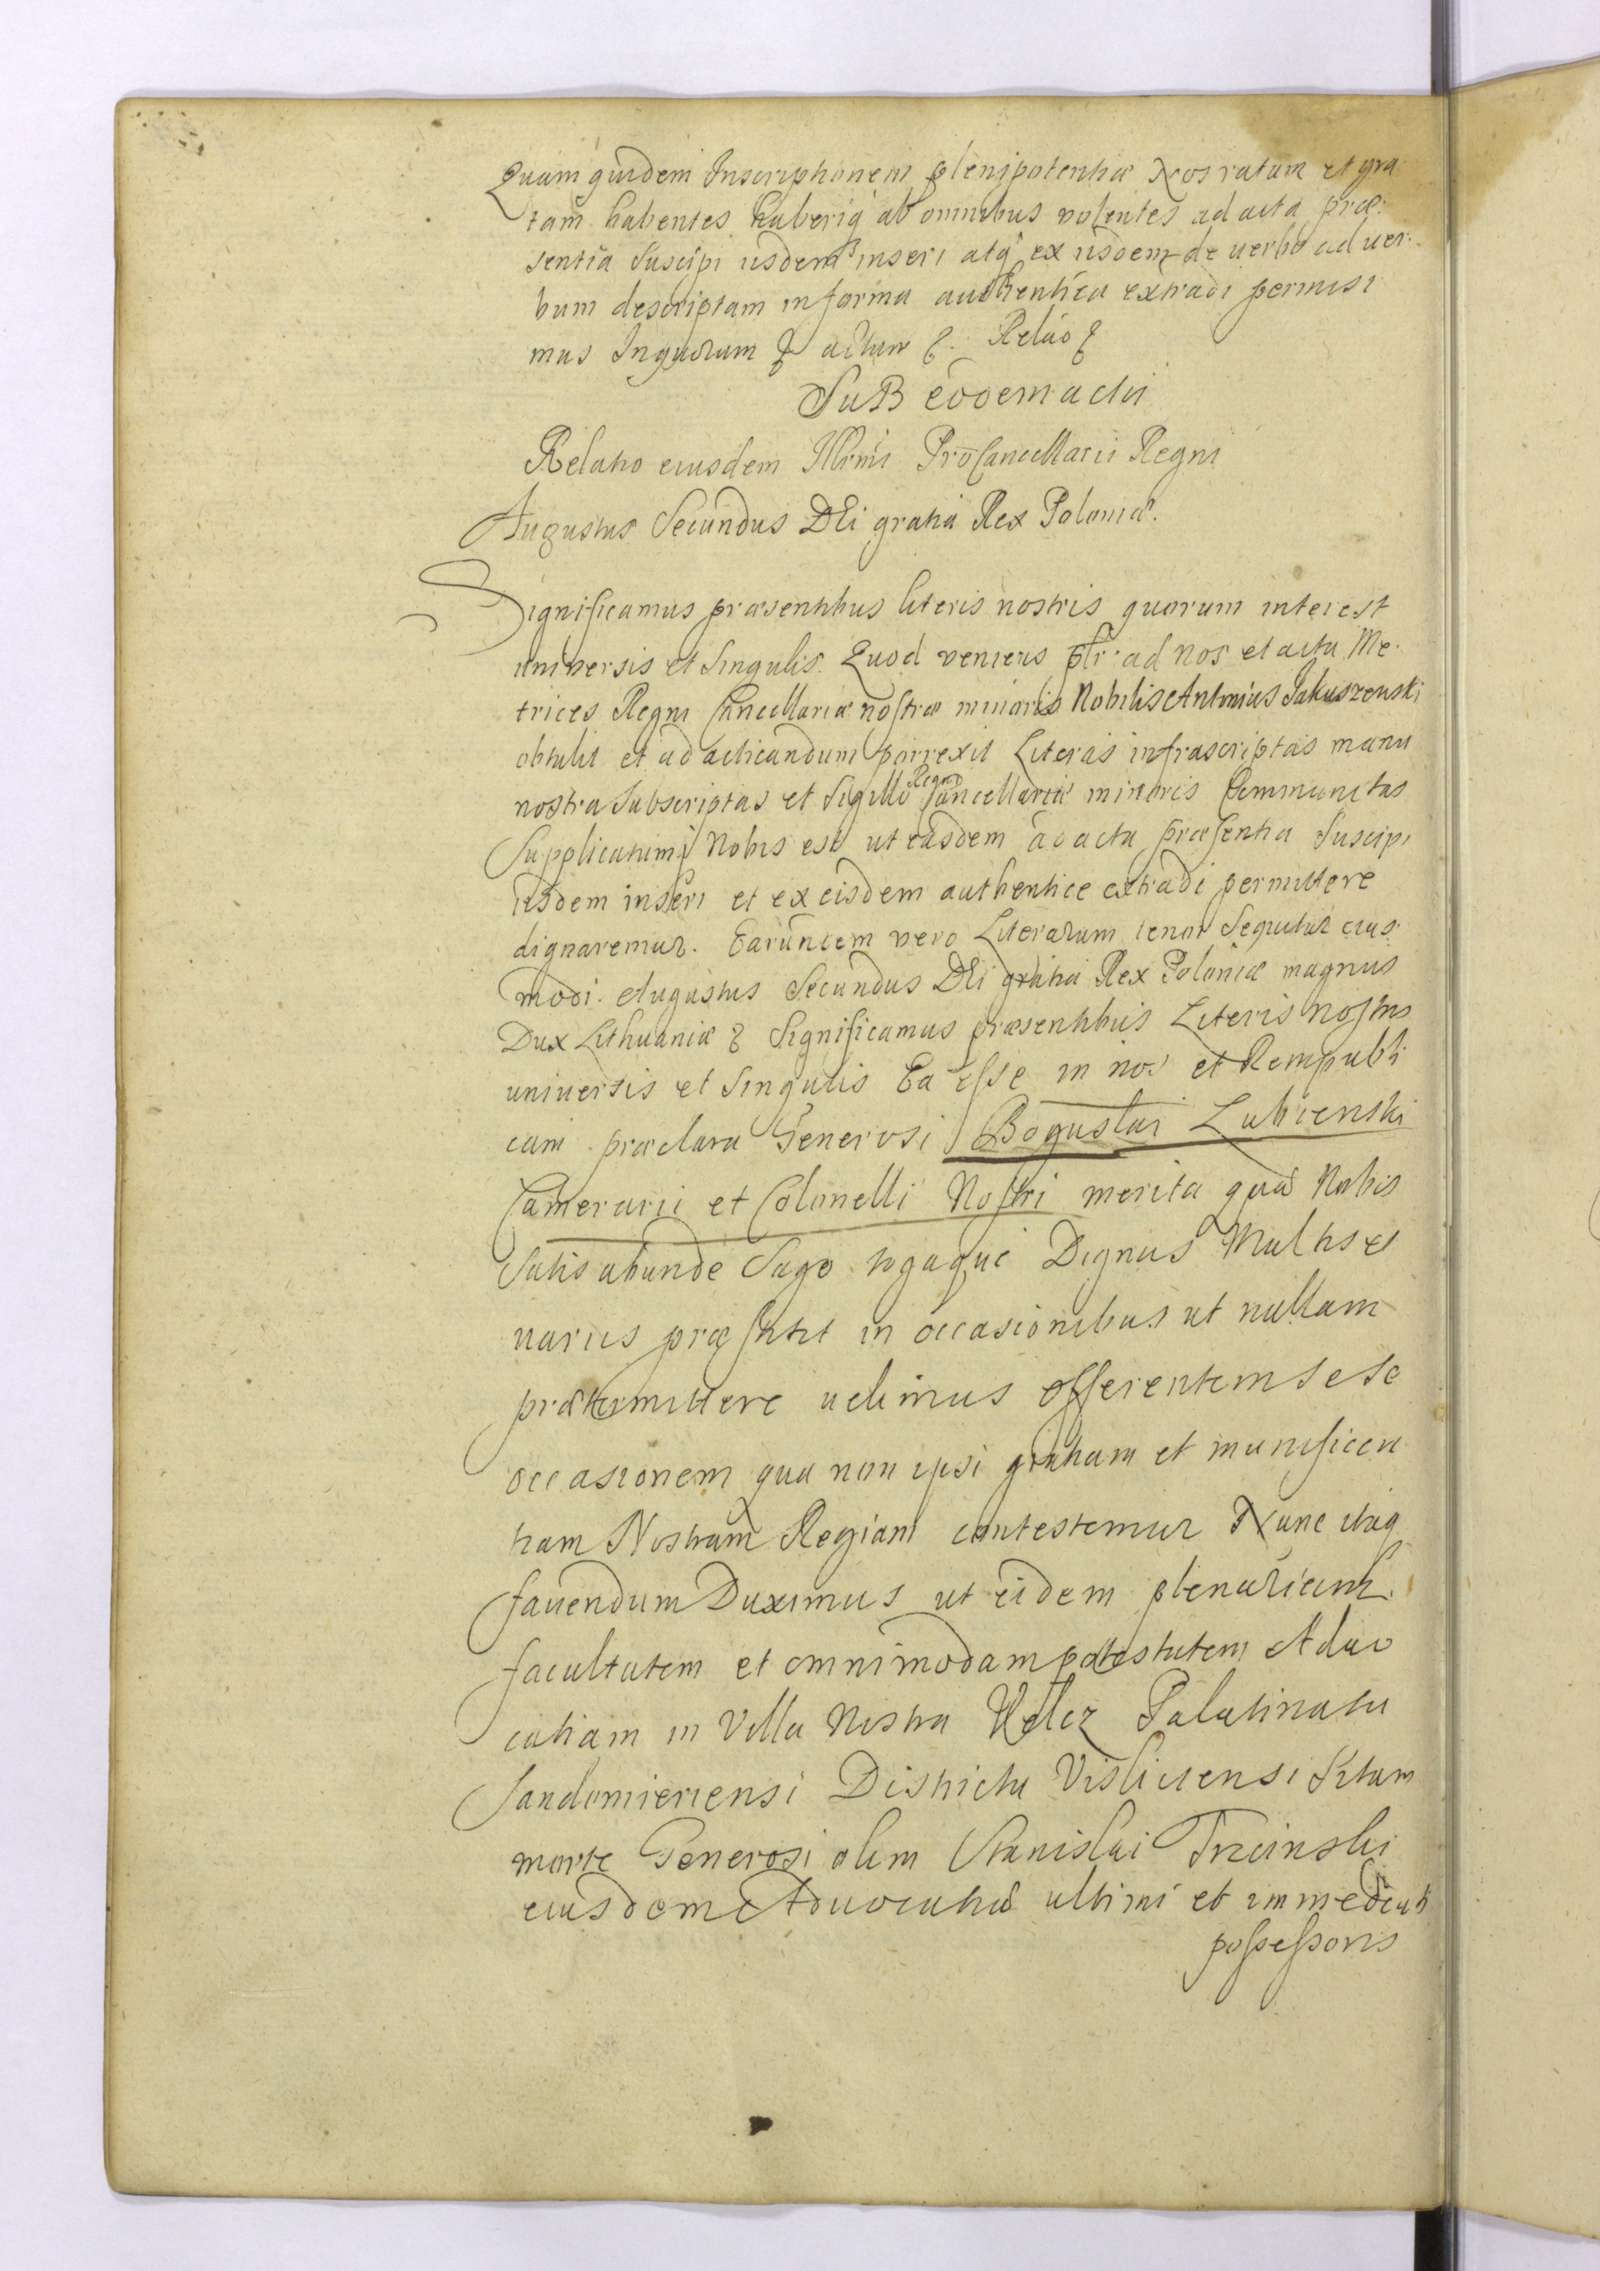 Quam quidem Inscriptionem plenipotentiæ Nos ratam et gra
tam habentes haberiq ab omnibus volentes ad acta præ:
sentia Suscipi iisdemq inseri atq ex iisdem de verbo ad ver:
bum descriptam in forma authentica extradi permisi
mus In quorum & actum &. Relão &
SuB eodem actu
Relatio eiusdem Illrmi ProCancellarii Regni
Augustus Secundus DEi gratia Rex Poloniæ.
Significamus præsentibus literis nostris quorum interest
universis et Singulis. Quod veniens plr: ad Nos et acta Me
trices Regni Cancellariæ nostræ minoris Nobilis Antonius Jakuszewski
obtulit et ad acticandum porrexit Literas infrascriptas manu
nostra Subscriptas et Sigillo Regni Cancellariæ minoris Communitas
Supplicatumq Nobis est ut easdem ad acta præsentia Suscipi
iisdem inseri et ex eisdem authentice extradi permittere
dignaremur. Earundem vero Literarum tenor Sequitur eius
modi. Augustus Secundus DEi gratia Rex Poloniæ magnus
Dux Lithuaniæ & Significamus præsentibus Literis nostris
universis et Singulis Ea esse in nos et Rempubli
cam præclara Generosi Boguslai Lubienski
Camerarii et Colonelli Nostri merita quæ Nobis
Satis abunde Sago togaque Dignus Multis et
variis præstitit in occasionibus ut nullam
prætermittere velimus offerentem sese
occasionem qua non ipsi gratiam et munificen
tiam Nostram Regiam contestemur Nunc itaq
favendum Duximus ut eidem plenariam
facultatem et omnimodam potestatem Advo
catiam in Villa Nostra Palatinatu
Sandomiriensi Districtu Visliciensi Sitam
morte Generosi olim Stanislai Trzcinski
eiusdem Advocatiæ ultimi et immediati
possessoris